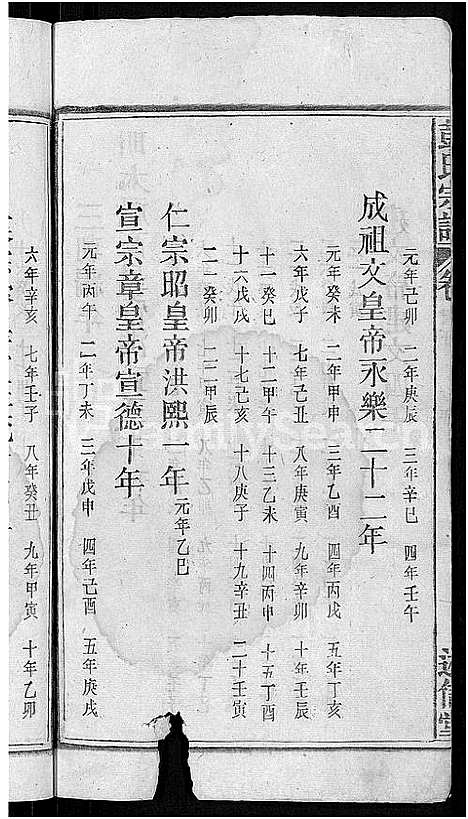 元年己卯 二年庚辰 三年辛巳 四年壬午
成祖文皇帝永樂二十二年
元年癸未 二年甲申 三年乙酉 四年丙戌 五年丁亥
六年戊子 七年己丑 八年庚寅 九年辛卯 十年壬辰
十一癸巳 十二甲午 十三乙未 十四丙申 十五丁酉
十六戊戌 十七己亥 十八庚子 十九辛丑 二十壬寅
二一癸卯 二二甲辰
仁宗昭皇帝洪熙一年 元年乙巳
宣宗章皇帝宣德十年
元年丙午 二年丁未 三年戊申 四年己酉 五年庚戌
六年辛亥 七年壬子 八年癸丑 九年甲寅 十年乙卯